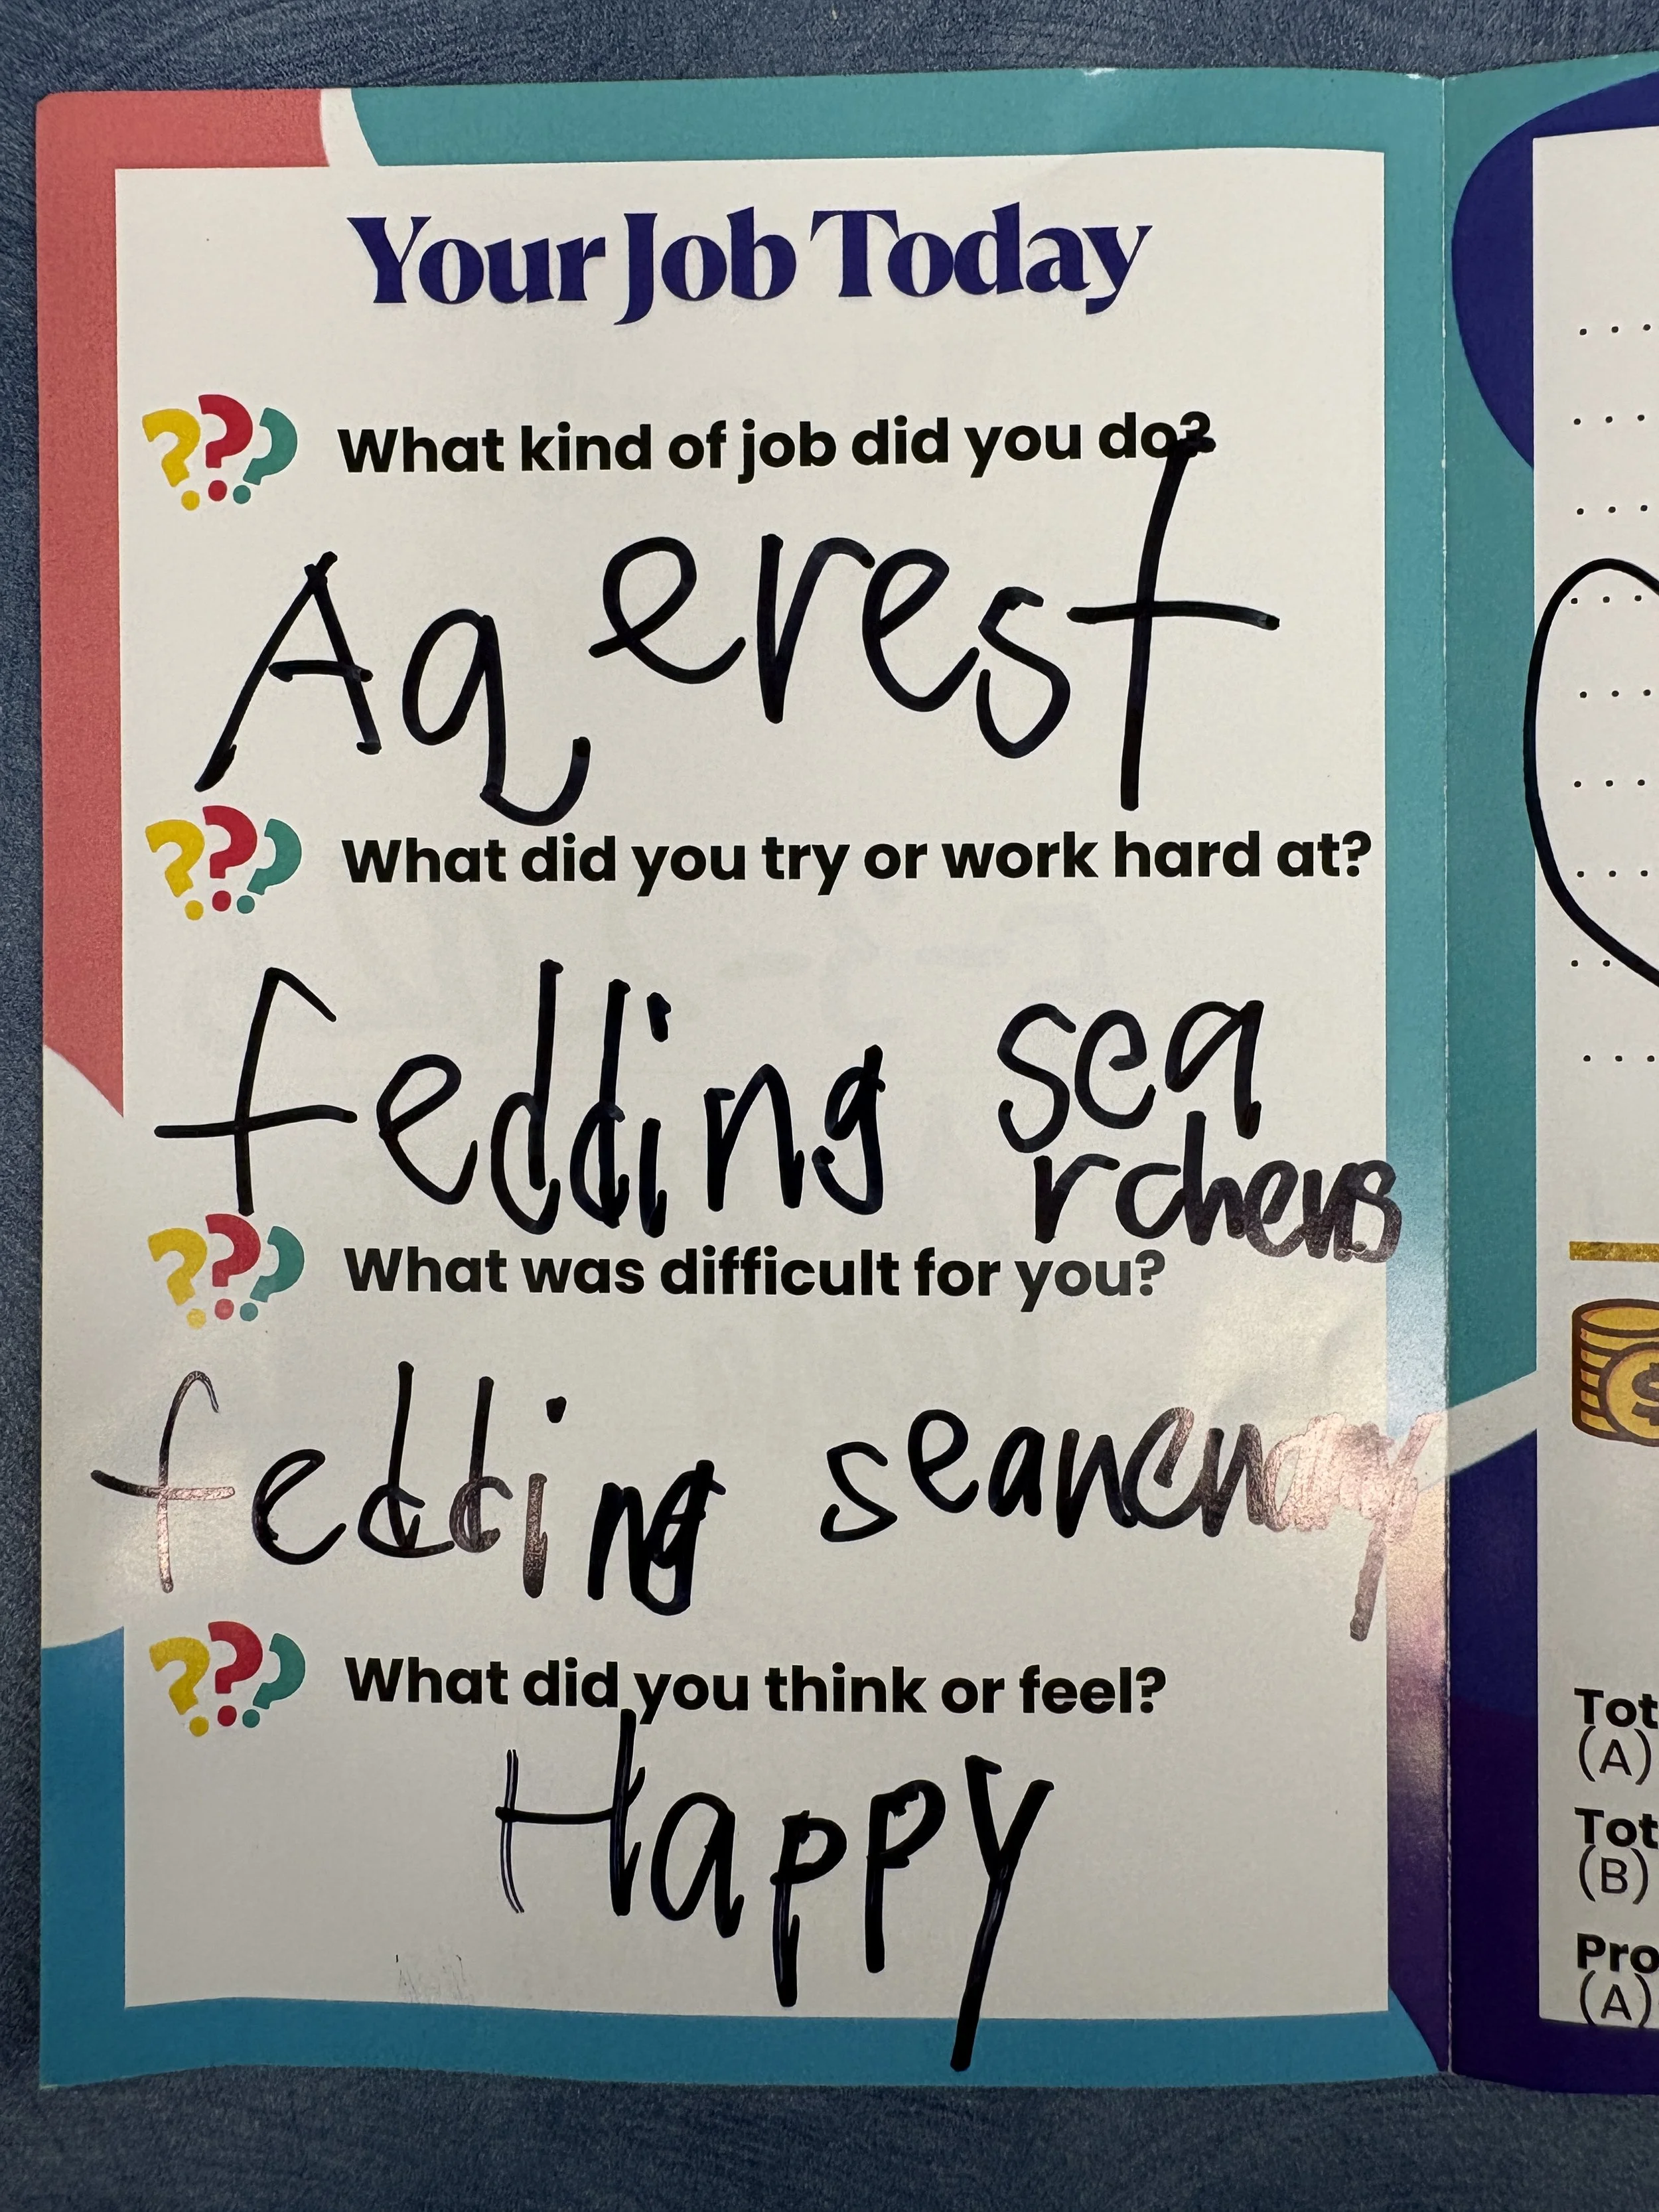 Your Job Today
What kind of job did you do?
Aq erest
What did you try or work hard at?
fedding sea
rchers
What was difficult for you?
fedding
What did you think or feel?
Happy
Tot
(A)
Tot
(B)
Pro
(A)